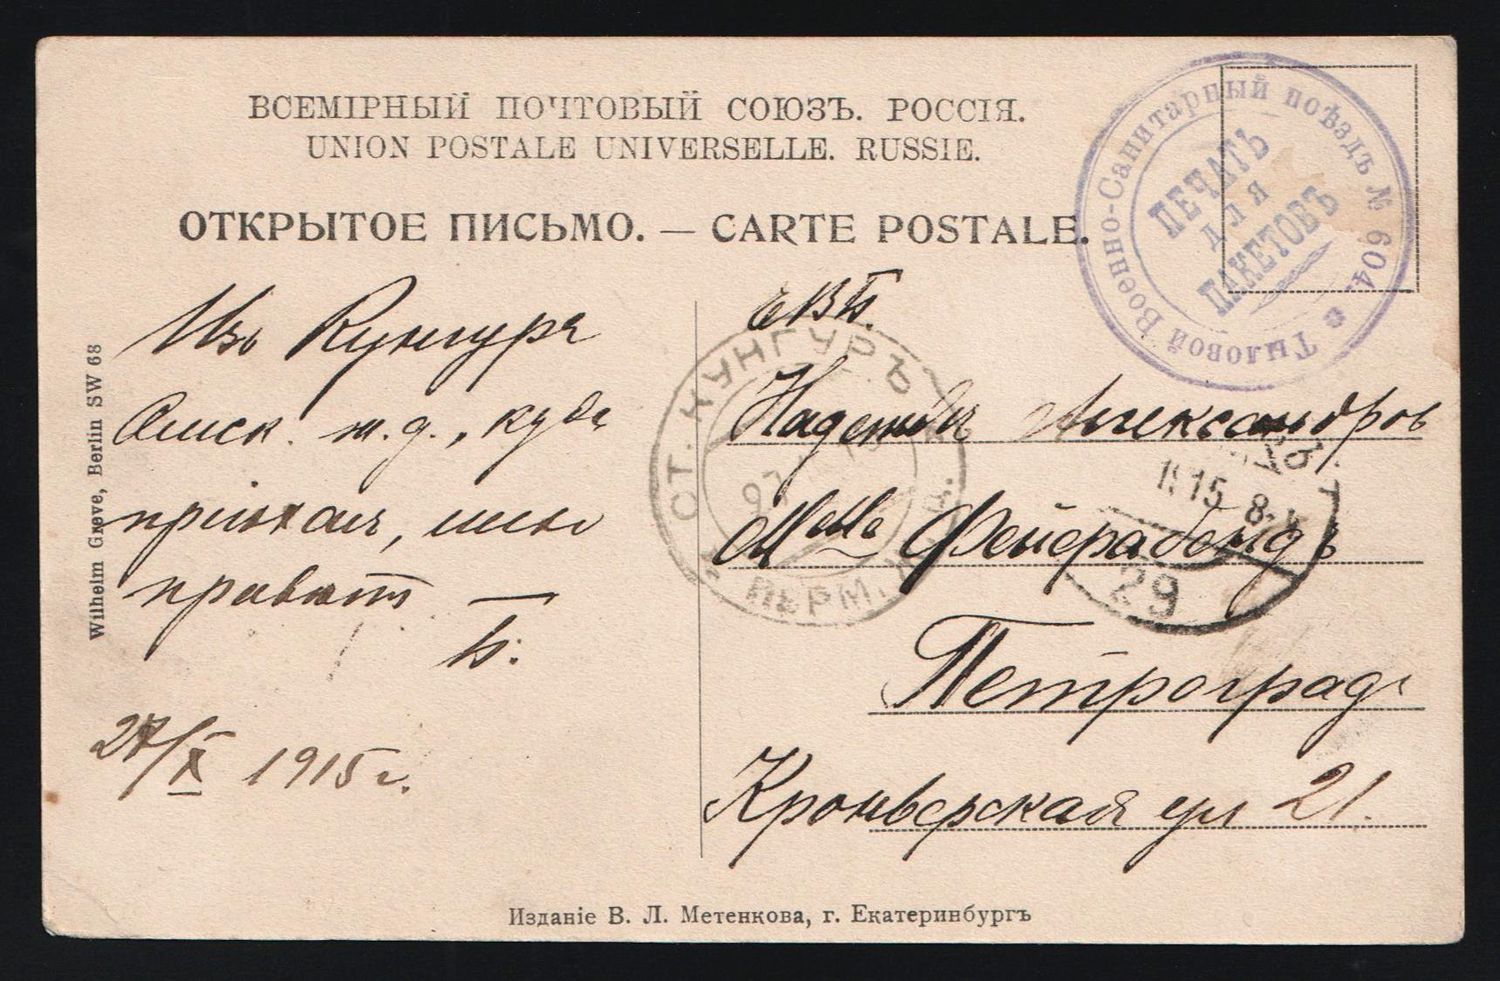 ВСЕМІРНЫЙ ПОЧТОВЫЙ СОЮЗЪ. РОССІЯ.
UNION POSTALE UNIVERSELLE. RUSSIE.
ОТКРЫТОЕ ПИСЬМО. — CARTE POSTALE.
Тыловой Военно-Санитарный поѣздъ № 604.
ПЕЧАТЬ
для
ПАКЕТОВЪ
Изъ Кунгура
Омск. ж. д., куда
пріѣхали, шлю
привѣтъ —
Б.
27/X 1915 г.
ЕВБ.
Надеждѣ Александров
Mlle Фейерабендъ
Петроград
Кронверкская ул 21.
СТ. КУНГУРЪ
ПЕРМ.
1915
29
Wilhelm Greve, Berlin SW 68
Изданіе В. Л. Метенкова, г. Екатеринбургъ